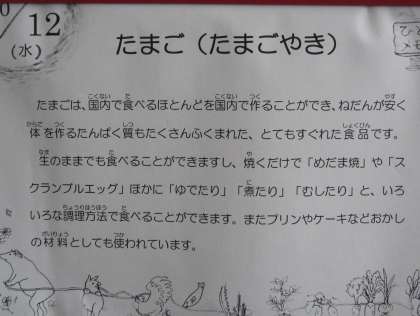 12
(水)
たまご(たまごやき)
たまごは、国内で食べるほとんどを国内で作ることができ、ねだんが安く
体を作るたんぱく質もたくさんふくまれた、とてもすぐれた食品です。
生のままでも食べることができますし、焼くだけで「めだま焼」や「ス
クランブルエッグ」ほかに「ゆでたり」「煮たり」「むしたり」と、いろ
いろな調理方法で食べることができます。またプリンやケーキなどおかし
の材料としても使われています。